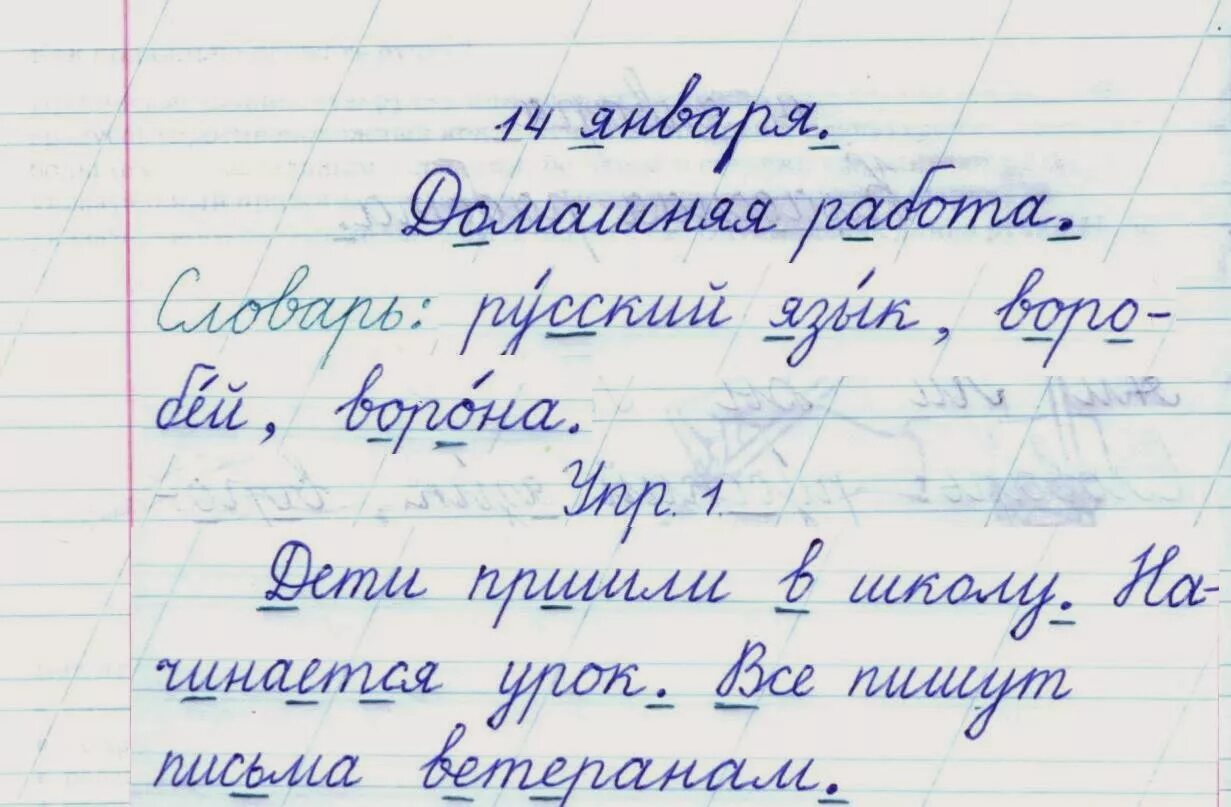 14 января.
Домашняя работа.
Словарь: ру́сский язы́к, воро-
бе́й, воро́на.
Упр. 1.
Дети пришли в школу. На-
чинается урок. Все пишут
письма ветеранам.